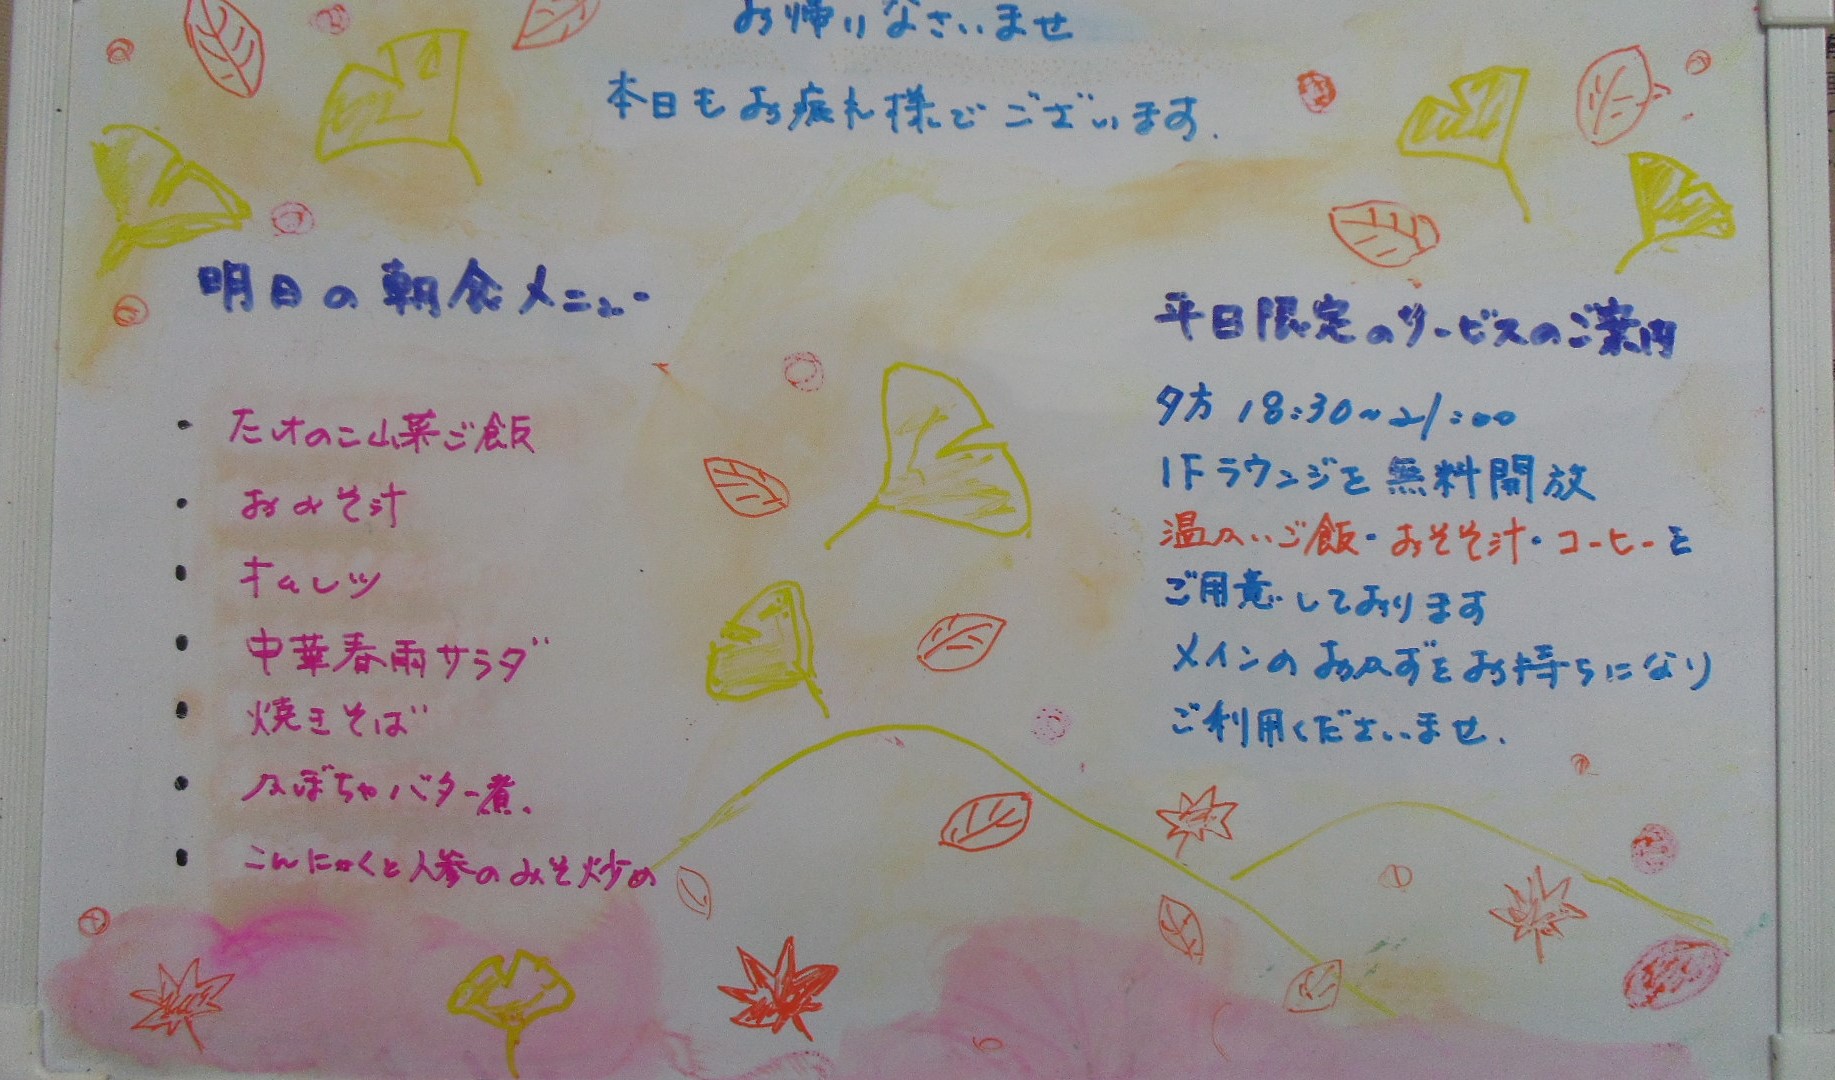 お帰りなさいませ
本日もお疲れ様でございます.
明日の朝食メニュー
・ たけのこ山菜ご飯
・ おみそ汁
・ オムレツ
・ 中華春雨サラダ
・ 焼きそば
・ かぼちゃバター煮.
・ こんにゃくと人参のみそ炒め
平日限定のサービスのご案内
夕方 18:30~21:00
1Fラウンジを無料開放
温かいご飯・おそそ汁・コーヒーを
ご用意しております
メインのおかずをお持ちになり
ご利用くださいませ.